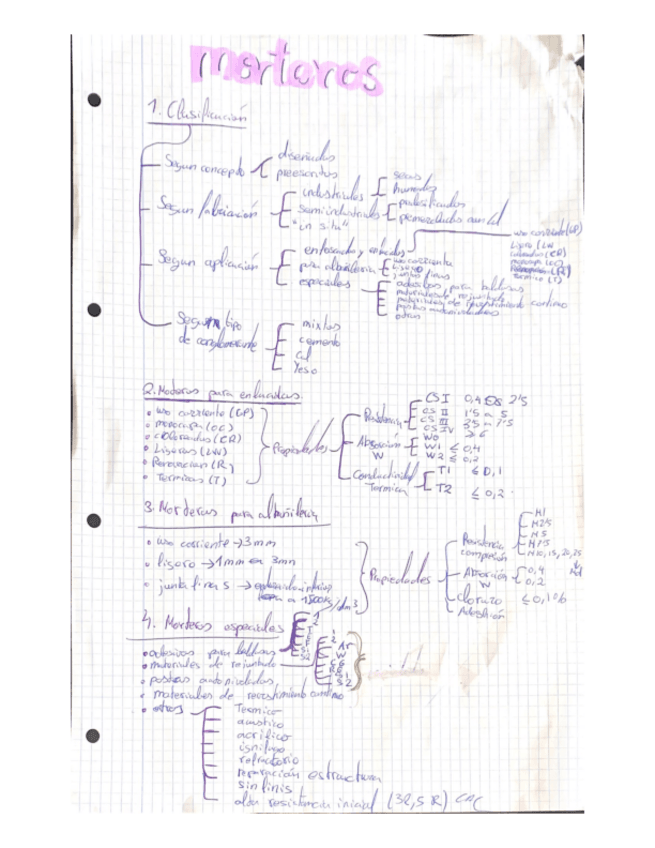 morteros
1. Clasificación
Segun concepto
diseñados
preescritos
Segun fabricación
industriales
secos
humedos
semiindustriales
predosificados
premezclados con cal
"in situ"
Segun aplicación
enfoscados y enlucidos
uso corriente (GP)
Ligero (LW
coloreados (CR)
monocapa (OC)
(R)
termico (T)
para albañileria
uso corriente
ligero
juntas finas
especiales
adesivos para baldosas
materiales de rejuntado
materiales de revestimiento continuo
pastas autonivelantes
otros
Segun tipo
de conglomerante
mixtos
cemento
Cal
Yeso
2. Morteros para enlucidos
• uso corriente (GP)
• monocapa (OC)
• coloreados (CR)
• Ligeros (LW)
• Renovacion (R)
• Termicos (T)
Propiedades
Resistencia
CS I 0,4 2'5
CS II 1'5 a 5
CS III 3'5 a 7'5
CS IV ≥ 6
Absorción
W
W0
W1 ≤ 0,4
W2 ≤ 0,2
Conductividad
Termica
T1 ≤ 0,1
T2 ≤ 0,2
3. Morteros para albañileria
• uso corriente → 3mm
• ligero → 1mm en 3mm
• junta finas →
Propiedades
Resistencia
compresión
M1
M2'5
M5
M7'5
M10, 15, 20, 25
Absorción
W
0,4
0,2
cloruro ≤ 0,1%
Adhesión
4. Morteros especiales
• adesivos para baldosas
1
2
• materiales de rejuntado
1
2
Ar
W
S2
• pastas autonivelantes
• materiales de revestimiento continuo
• otros
Termico
acustico
acrilico
ignifugo
refractario
reparación estructura
sin finis
alta resistencia inicial (32,5 R) CAC